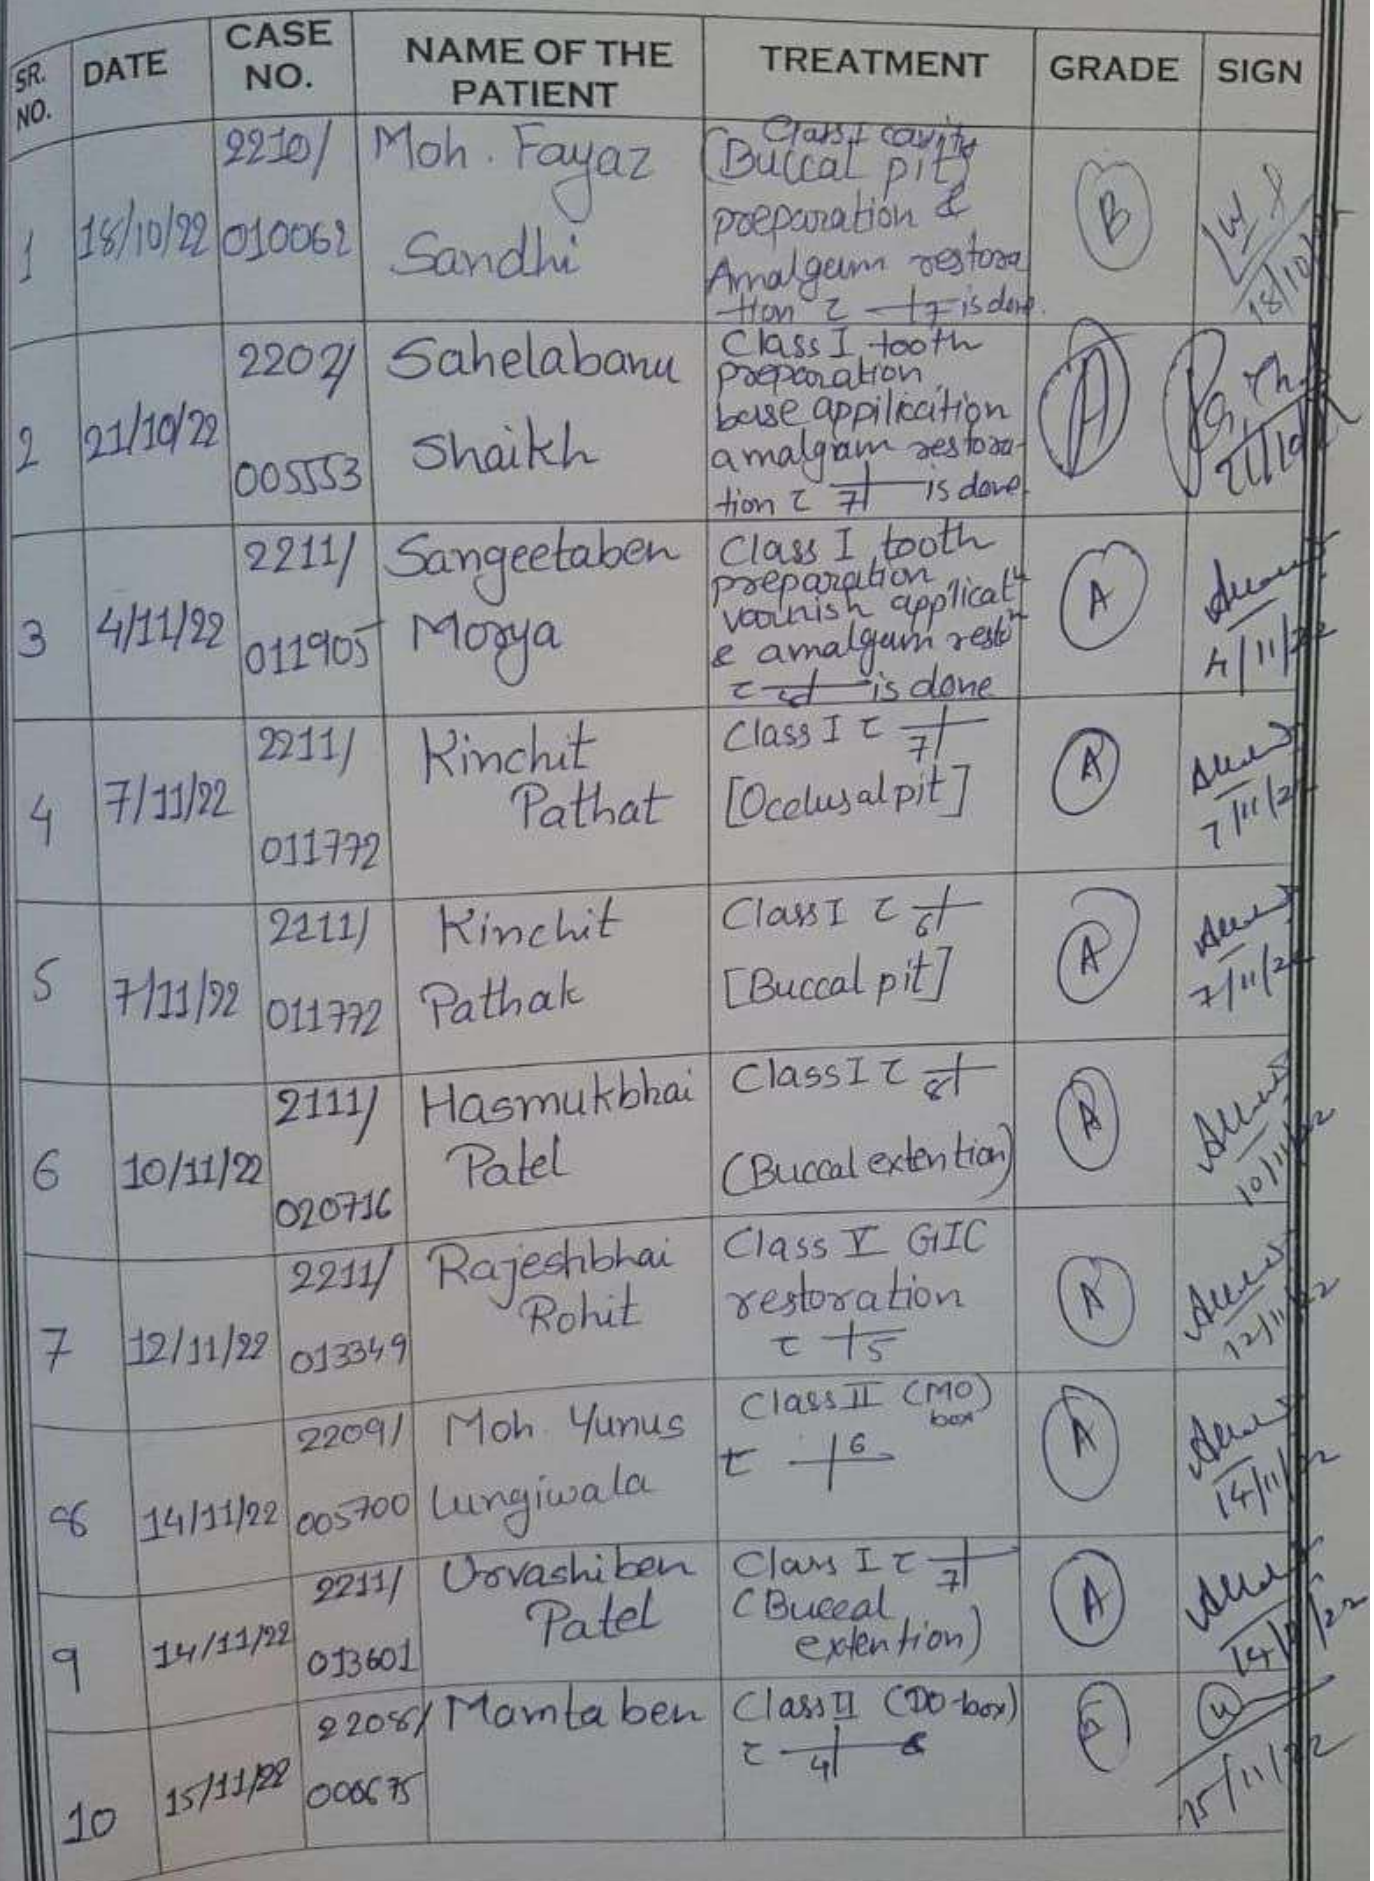 SR. NO. DATE CASE NO. NAME OF THE PATIENT TREATMENT GRADE SIGN
1 18/10/22 2210/ 010062 Moh. Fayaz Sandhi
Class I cavity
(Buccal pit)
preparation &
Amalgam restora
tion c 7 is done.
B
18/10
2 21/10/22 2202/ 005553 Sahelabanu Shaikh
Class I tooth
preparation
base appilication
amalgam restora-
tion c 7 is done
A
21/10
3 4/11/22 2211/ 011905 Sangeetaben Morya
Class I tooth
preparation
varnish applicatn
& amalgum reston
c is done
A
4/11/22
4 7/11/22 2211/ 011772 Kinchit Pathat
Class I c 7
[Occlusal pit]
A
7/11/22
5 7/11/22 2111/ 011772 Kinchit Pathak
Class I c 6
[Buccal pit]
A
7/11/22
6 10/11/22 2111/ 020716 Hasmukbhai Patel
Class I c 8
(Buccal extention)
A
10/11/22
7 12/11/22 2211/ 013349 Rajeshbhai Rohit
Class V GIC
restoration
c 5
A
12/11/22
8 14/11/22 2209/ 005700 Moh. Yunus Lungiwala
Class II (MO)
box
c 6
A
14/11/22
9 14/11/22 2211/ 013601 Urvashiben Patel
Class I c 7
(Buccal
extention)
A
14/11/22
10 15/11/22 2208/ 006675 Mamtaben
Class II (DO-box)
c 4
15/11/22